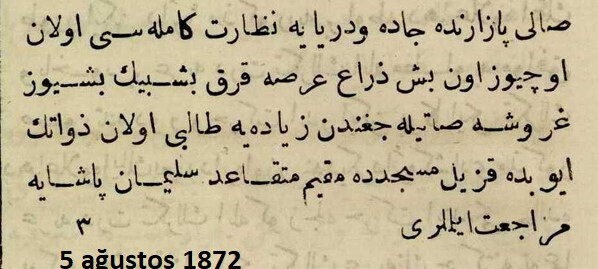 صالی پازارنده جاده ودریایه نظارت كامله سی اولان
اوچیوز اون بش ذراع عرصه قرق بشبیك بشیوز
غروشه صاتیله جغندن زیاده یه طالبی اولان ذواتك
ایوبده قزیل مسجدده مقیم متقاعد سلیمان پاشایه
مراجعت ایللری ٣
5 ağustos 1872